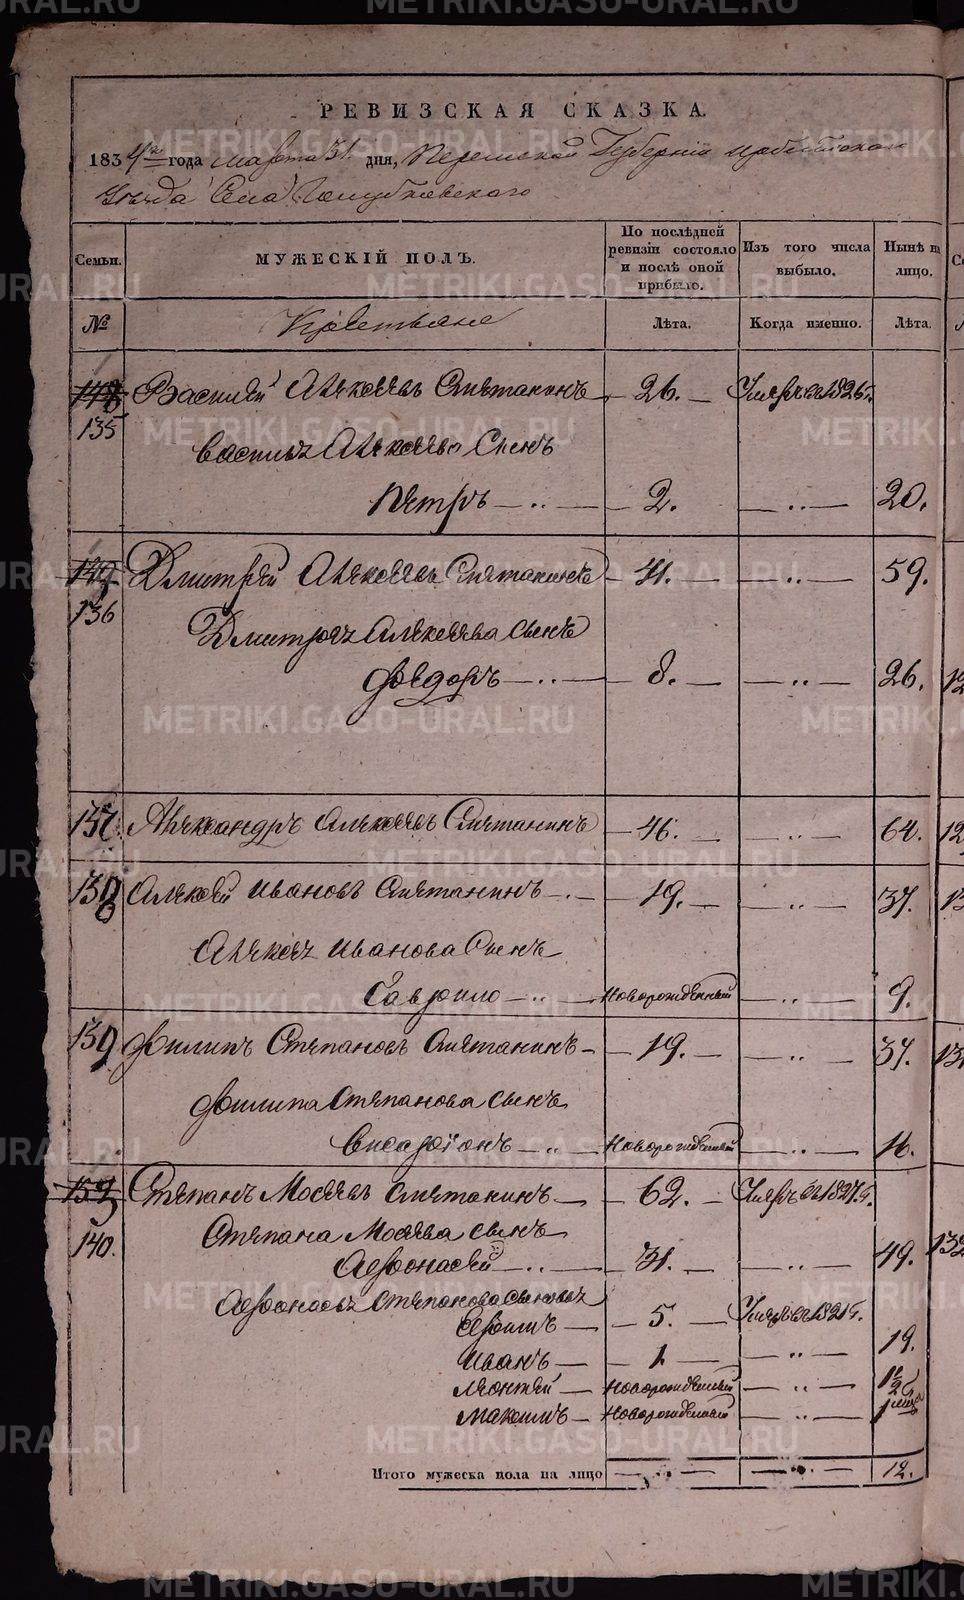 РЕВИЗСКАЯ СКАЗКА.
1834го года марта 31. дня, Пермской Губернiи Ирбитскаго
Уезда Села Голубковскаго
Семьи. МУЖЕСКIЙ ПОЛЪ. По послѣдней ревизiи состояло и послѣ оной прибыло. Изъ того числа выбыло. Нынѣ на лицо.
№ Крестьяне Лѣта. Когда именно. Лѣта.
148 Василiй Алексеевъ Сметанинъ 26. Умеръ въ 1826г.
135
Васильи Алексеева Сынъ
Петръ 2. 20.
149 Дмитрей Алексеевъ Сметанинъ 41. 59.
136
Дмитрея Алексеева сынъ
Федоръ 8. 26.
137 Александръ Алексеевъ Сметанинъ 46. 64.
138 Алексей Ивановъ Сметанинъ 19. 37.
Алексея Иванова Сынъ
Гаврило Новорожденный 9.
139 Филипъ Степановъ Сметанинъ 19. 37.
Филипа Степанова сынъ
Висарiонъ Новорожденный 16.
152 Степанъ Мосеевъ Сметанинъ 62. Умеръ въ 1827г.
140.
Степана Мосеева сынъ
Афонасей 31. 49.
Афонасья Степанова сыновья
Ефимъ 5. Умеръ въ 1821г.
Иванъ 1 19.
Леонтей Новорожденный
Максимъ Новорожденный
Итого мужеска пола на лицо 12.
METRIKI.GASO-URAL.RU